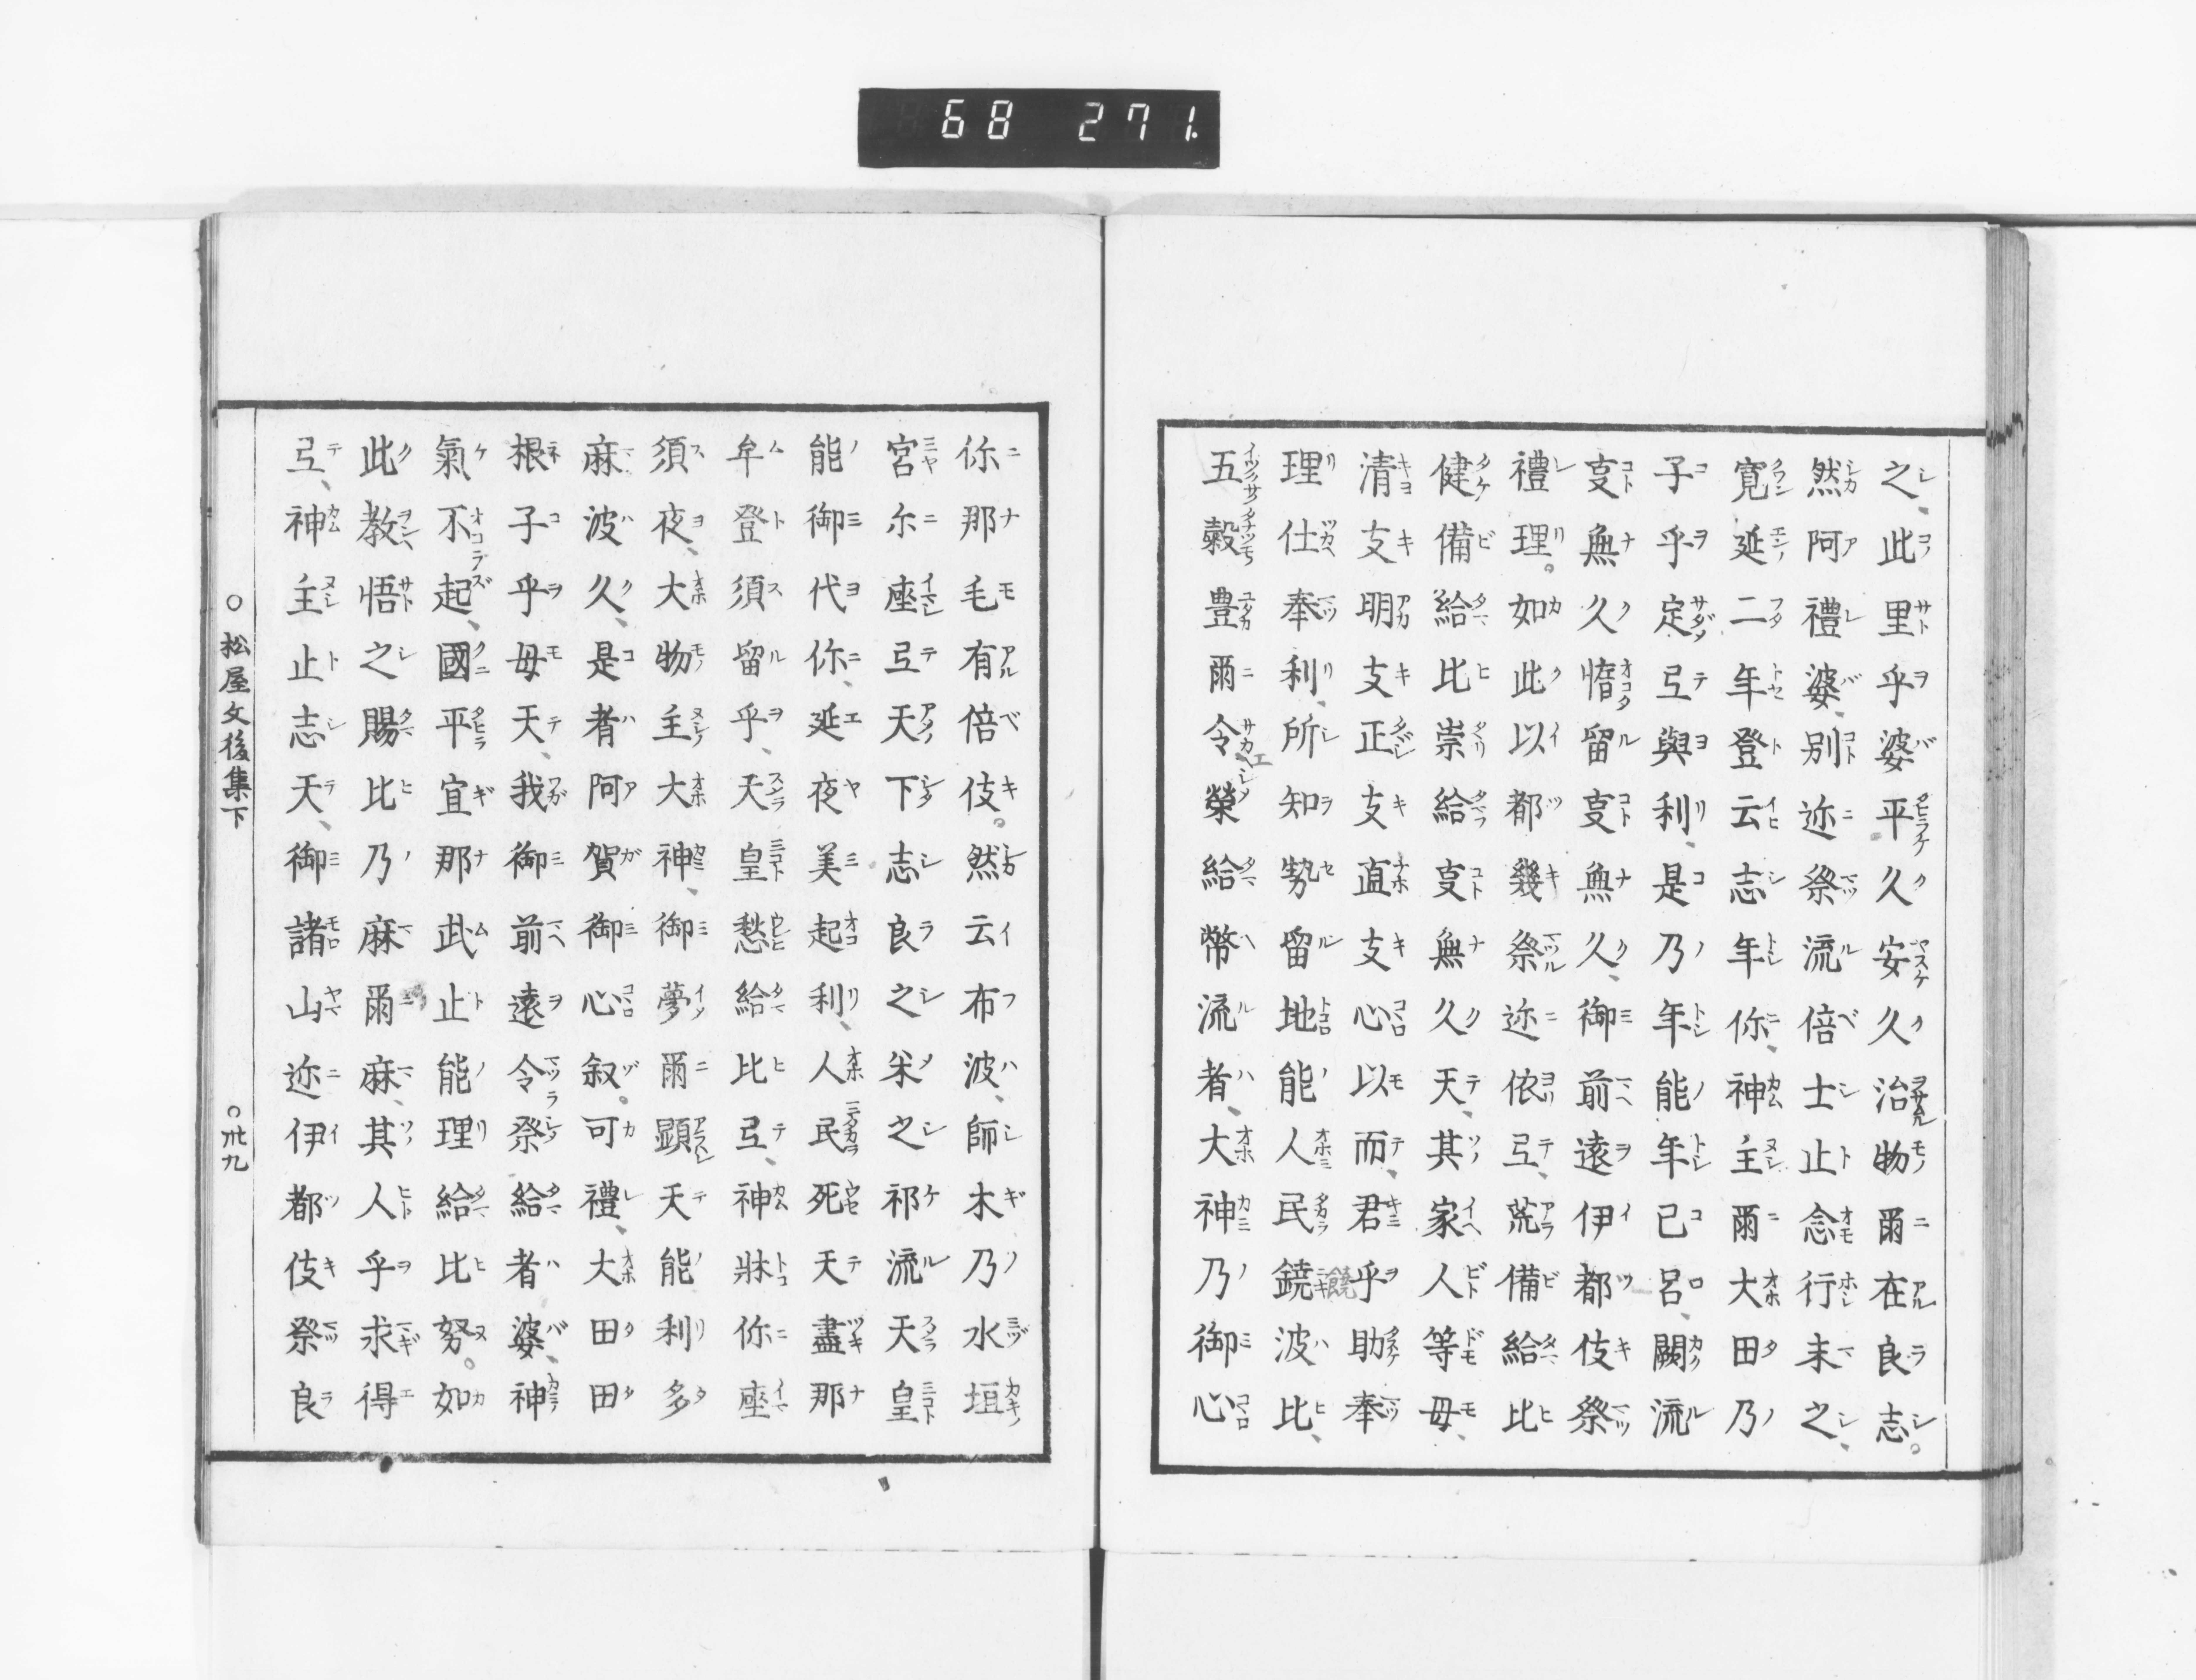 68 271.
之、此里乎婆平久安久治物爾在良志。
然阿禮婆、別迩祭流倍士止念行末之、
寛延二年登云志年你、神主爾大田乃
子乎定弖與利、是乃年能年已呂、闕流
㕝無久惰留㕝無久、御前遠伊都伎祭
禮理。如此以都幾祭迩依弖、荒備給比
健備給比崇給㕝無久天、其家人等毋、
清支明支正支直支心以而、君乎助奉
理仕奉利、所知勢留地能人民鐃波比、
五穀豊爾令榮給幣流者、大神乃御心
你那毛有倍伎。然云布波、師木乃水垣
宮尓座弖天下志良之米之祁流天皇
能御代你、延夜美起利、人民死天盡那
牟登須留乎、天皇愁給比弖、神牀你座
須夜、大物主大神、御夢爾顯天能利多
麻波久、是者阿賀御心叙。可禮、大田田
根子乎毋天、我御前遠令祭給者婆、神
氣不起、國平宜那武止能理給比努。如
此教悟之賜比乃麻爾麻、其人乎求得
弖、神主止志天、御諸山迩伊都伎祭良
○松屋文後集下
○卅九